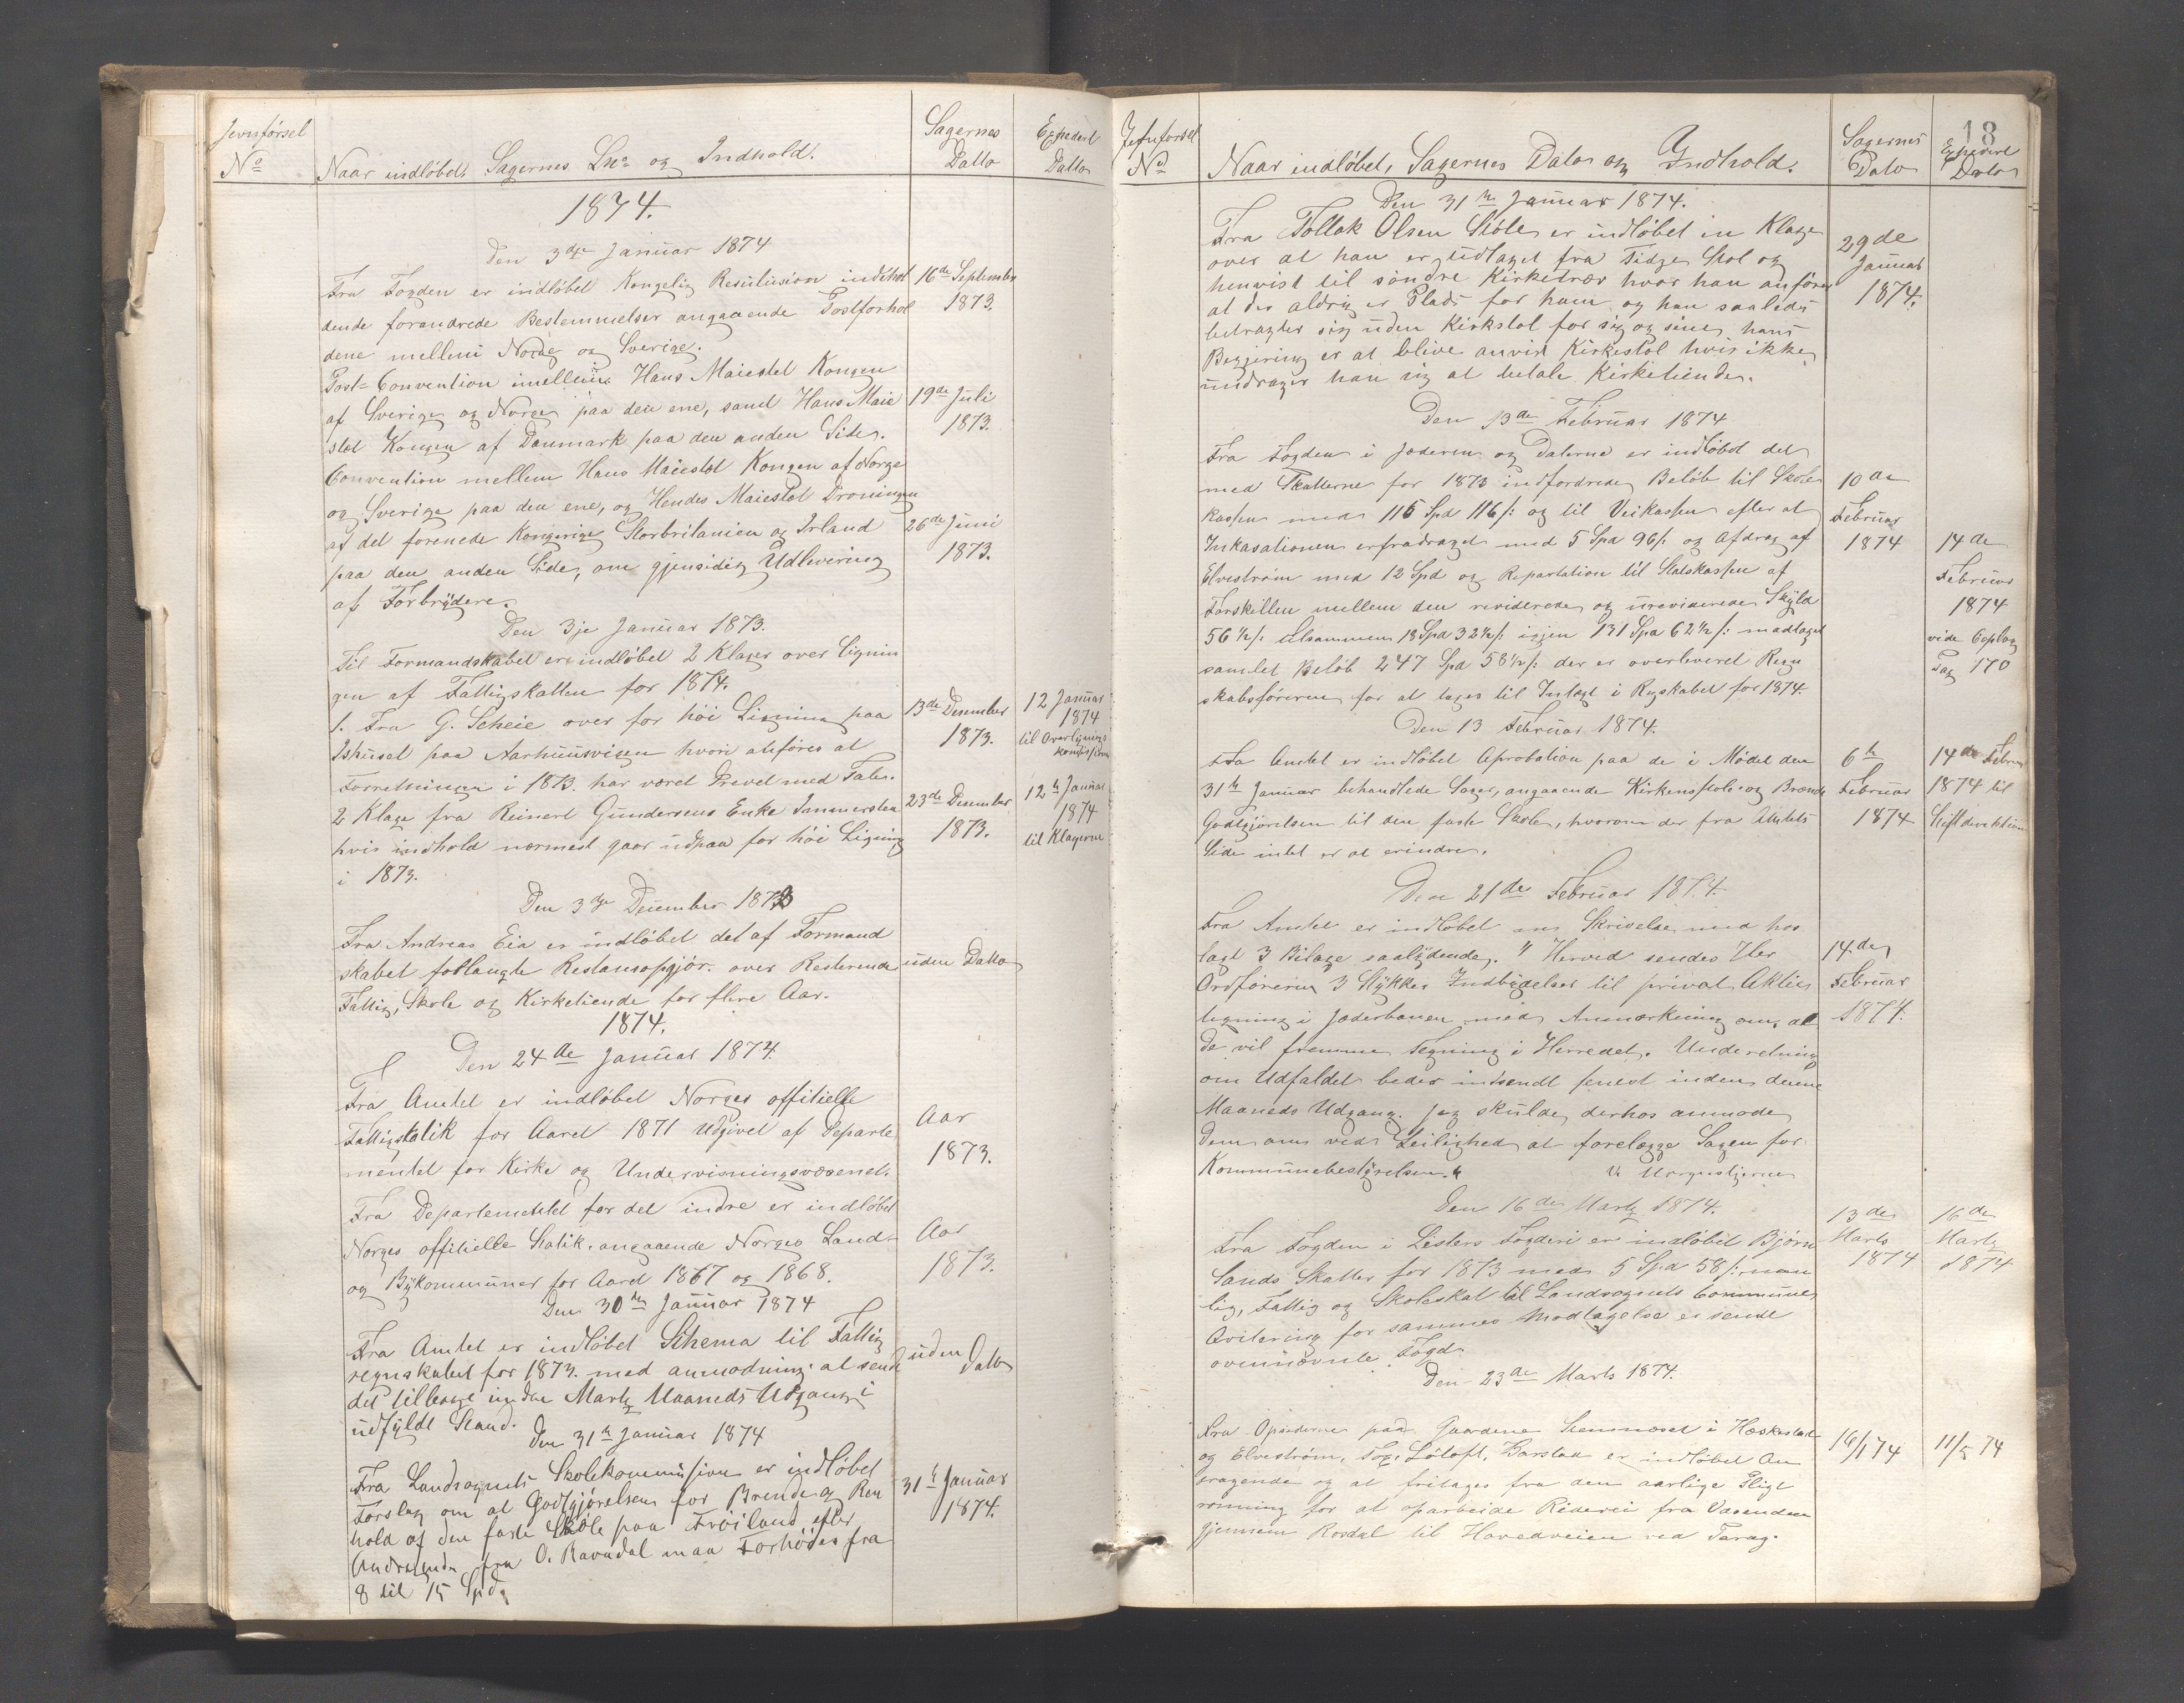 Jevnførsel
No
Naar indløbet, Sagernes No og Indhold.
Sagernes
Datto
Expedert
Datto
1874.
Den 3die Januar 1874
Fra Fogden er indløbet Kongelig Resulusion indehol
dende forandrede Bestemmelser angaaende Postforhol
dene mellem Norge og Sverige.
16de September
1873.
Post-Convention imellem Hans Maiestet Kongen
af Sverige og Norge paa den ene, samt Hans Maie
stet Kongen af Danmark paa den anden Side.
19de Juli
1873.
Convention mellem Hans Maiestæt Kongen af Norge
og Sverige paa den ene, og Hendes Maiestæt Droningen
af det forenede Kongerige Storbritanien og Irland
paa den anden Side, om gjensidig Udlevering
af Forbrydere.
26de Juni
1873.
Den 3je Januar 1873.
Til Formandskabet er indløbet 2 Klager over Lignin
gen af Fattigskatten for 1874.
1. Fra G. Scheie over for høi Ligning paa
Ishuset paa Aarhuusvigen hvori anføres at
Forretningen i 1873. har været Drevet med Tab.
13de Desember
1873.
12 Januar
1874
til Overlignings
komissionen
2 Klage fra Reinert Gundersens Enke Immerstein
hvis indhold nærmest gaar udpaa for høi Ligning
i 1873.
23de Desember
1873.
12te Januar
1874
til Klagerne
Den 3die December 1873
Fra Andreas Eia er indløbet det af Formand
skabet forlangte Restanceopgjør over Resterende
Fattig, Skole og Kirketiende for flere Aar.
uden Datto
1874.
Den 24de Januar 1874.
Fra Amtet er indløbet Norges offitielle
Fattigstatik for Aaret 1871 Udgivet af Departe
mentet for Kirke og Undervisningsvæsenet.
Aar
1873.
Fra Departementet for det indre er indløbet
Norges offitielle Statik angaaende Norges Land-
og Bykommuner for Aaret 1867 og 1868.
Aar
1873.
Den 30te Januar 1874
Fra Amtet er indløbet Schema til Fattig
regnskabet for 1873. med anmodning at sende
det tilbage inden Marts Maaneds Udgang i
udfyldt Stand.
uden Datto
Den 31te Januar 1874
Fra Landsognets Skolekommission er indløbet
Forslag om at Godtgjørelsen for Brende og Ren
hold af den faste Skole paa Frøiland efter
Andragende fra O. Ravndal maa Forhøies fra
8 til 15 Spd.
31te Januar
1874.
18
Jefnførsel
No
Naar indløbet, Sagernes Dato og Indhold.
Sagernes
Dato
Expedert
Dato
Den 31te Januar 1874.
Fra Tollak Olsen Støle er indløbet en Klage
over at han er udtaget fra Tidge Stol og
henvist til søndre Kirketrær hvor han anfører
at der aldrig er Plads for ham og han saaledes
betragter sig uden Kirkstol for sig og sine, hans
Begjering er at blive anvist Kirkestol hvis ikke
undrager han sig at betale Kirketiende.
29de
Januar
1874.
Den 13de Februar 1874
Fra Fogden i Jæderen og Dalerne er indløbet det
med Skatterne for 1873 indfordrede Beløb til Skole
kassen med 115 Spd 116 s: og til Veikassen efter at
Inkasationen erfradraget med 5 Spd 96 s. og Afdrag af
Elvestrøm med 12 Spd og Repartation til Statskassen af
Forskillen mellem den reviderede og ureviderede Skyld
56 1/2 s: tilsammen 18 Spd 32 1/2 s: igjen 131 Spd 62 1/2 s: modtaget
samlet Beløb 247 Spd 58 1/2 s: der er overleveret Regn
skabsføreren for at tages til Indtægt i Regskabet for 1874.
10de
Februar
1874
14de
Februar
1874
vide Copibog
Pag 170
Den 13 Februar 1874.
Fra Amtet er indløbet Aprobation paa de i Mødet den
31te Januar behandlede Sager, angaaende Kirkenstole og Brende
Godtgjørelsen til den faste Skole, hvorom der fra Amtets
Side intet er at erindre.
6te
Februar
1874
14de Febru
1874 til
Stiftdirektionen
Den 21de Februar 1874.
Fra Amtet er indløbet en Skrivelse med hos
lagt 3 Bilage saalydende. "Herved sendes Hr
Ordføreren 3 Stykker Indbydelser til privat Aktie
tegning i Jæderbanen med Anmærkning om, at
De vil fremme Tegning i Herredet. Underetning
om Udfaldet bedes indsendt senest inden denne
Maaneds Udgang. Jeg skulde derhos anmode
Dem om ved Leilighed at forelægge Sagen for
Kommunebestyrelsen."
14de
Februar
1874.
Den 16de Marts 1874.
Fra Fogden i Listers Fogderi er indløbet Bjørn
sands Skatter for 1873 med 5 Spd 58 s: nem
lig, Fattig og Skoleskat til Landsognets Commune
Qvitering for sammes Modtagelse er sendt
ovennævnte Fogd.
13de
Marts
1874
16de
Marts
1874
Den 23de Marts 1874.
Fra Opsidderne paa Gaardene Stemmeset i Heskestad
og Elvestrøm, Løtoft, Barstad er indløbet An
dragende og at fritages fra den aarlige
for at oparbeide Rideveie fra
gjennem Rosdal til Hovedveien ved
16/1 74
11/5 74